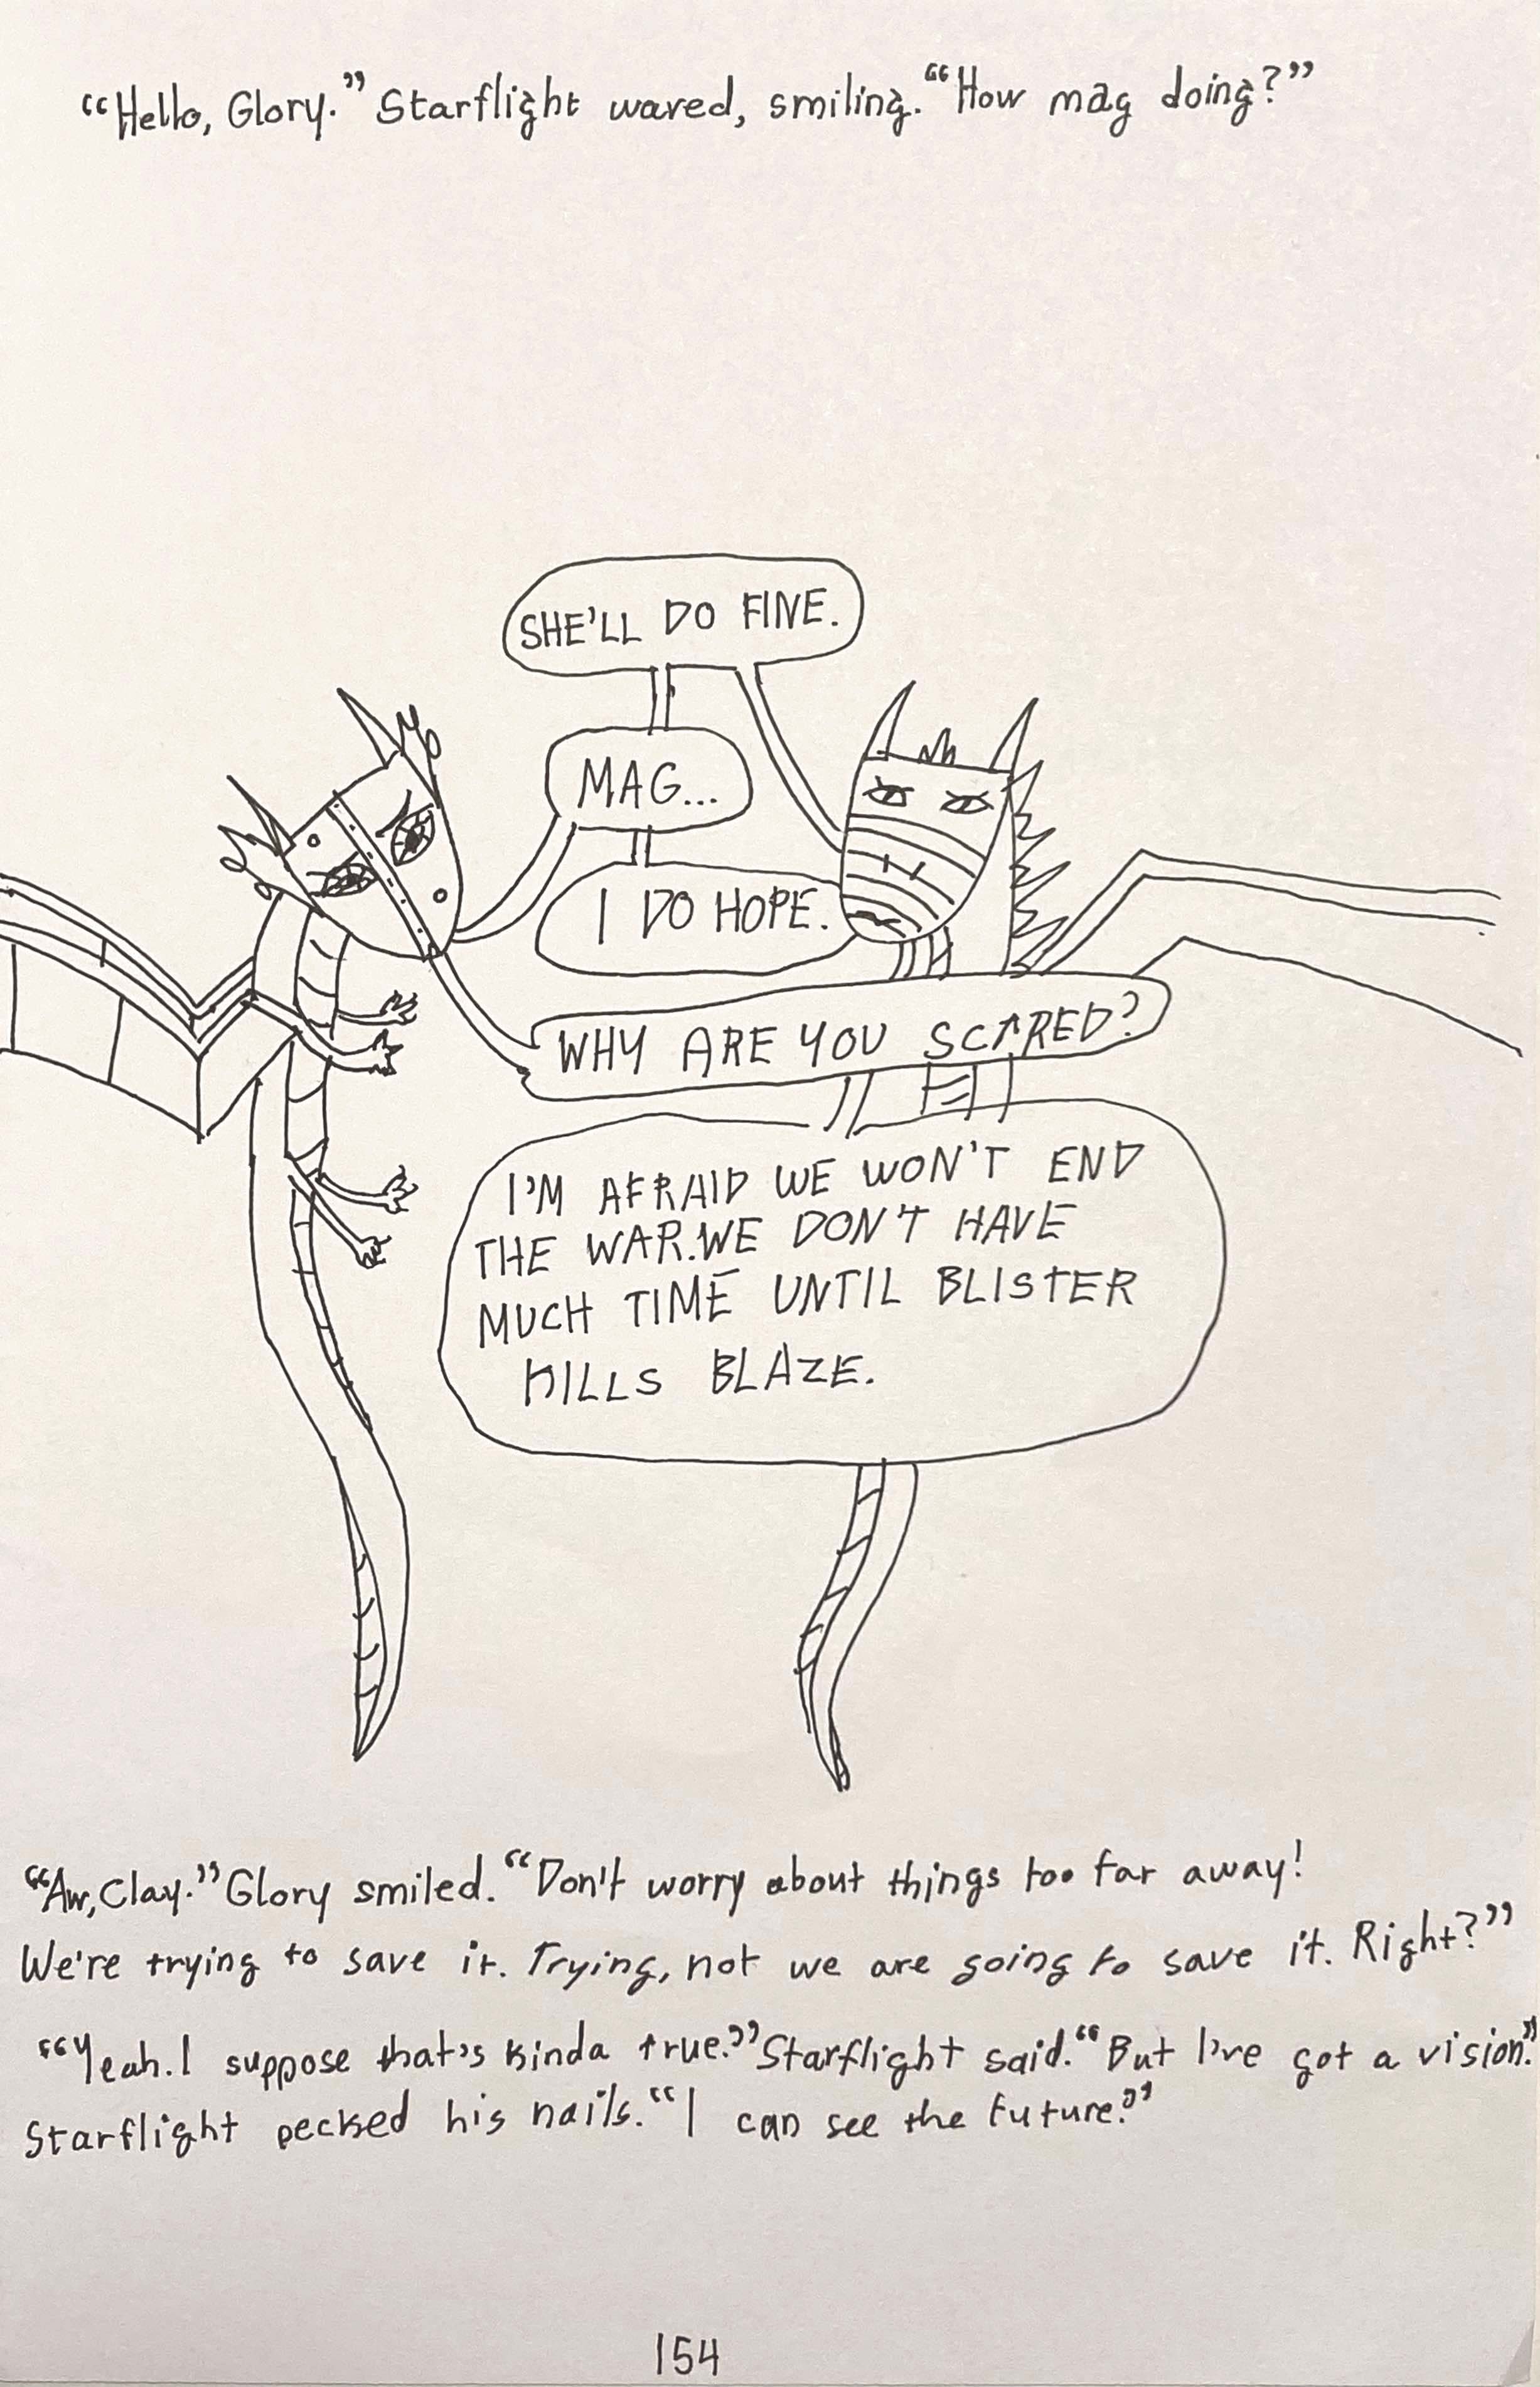 “Hello, Glory.” Starflight waved, smiling. “How mag doing?”
SHE'LL DO FINE.
MAG...
I DO HOPE.
WHY ARE YOU SCARED?
I'M AFRAID WE WON'T END
THE WAR. WE DON'T HAVE
MUCH TIME UNTIL BLISTER
KILLS BLAZE.
“Aw, Clay.” Glory smiled. “Don't worry about things too far away!
We're trying to save it. Trying, not we are going to save it. Right?”
“Yeah. I suppose that's kinda true.” Starflight said. “But I've got a vision.”
Starflight pecked his nails. “I can see the future.”
154